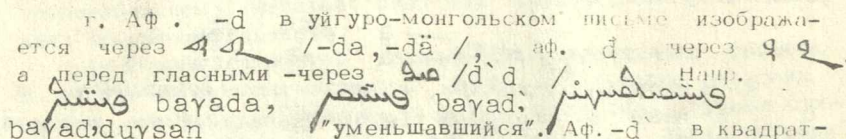 г. Аф. -d в уйгуро-монгольском письме изобража-
ется через /-da,-dä/, аф. d через
а перед гласными -через /d`d / Напр.
baγada, baγad,
baγad;duγsan /"уменьшавшийся". Аф.-d в квадрат-